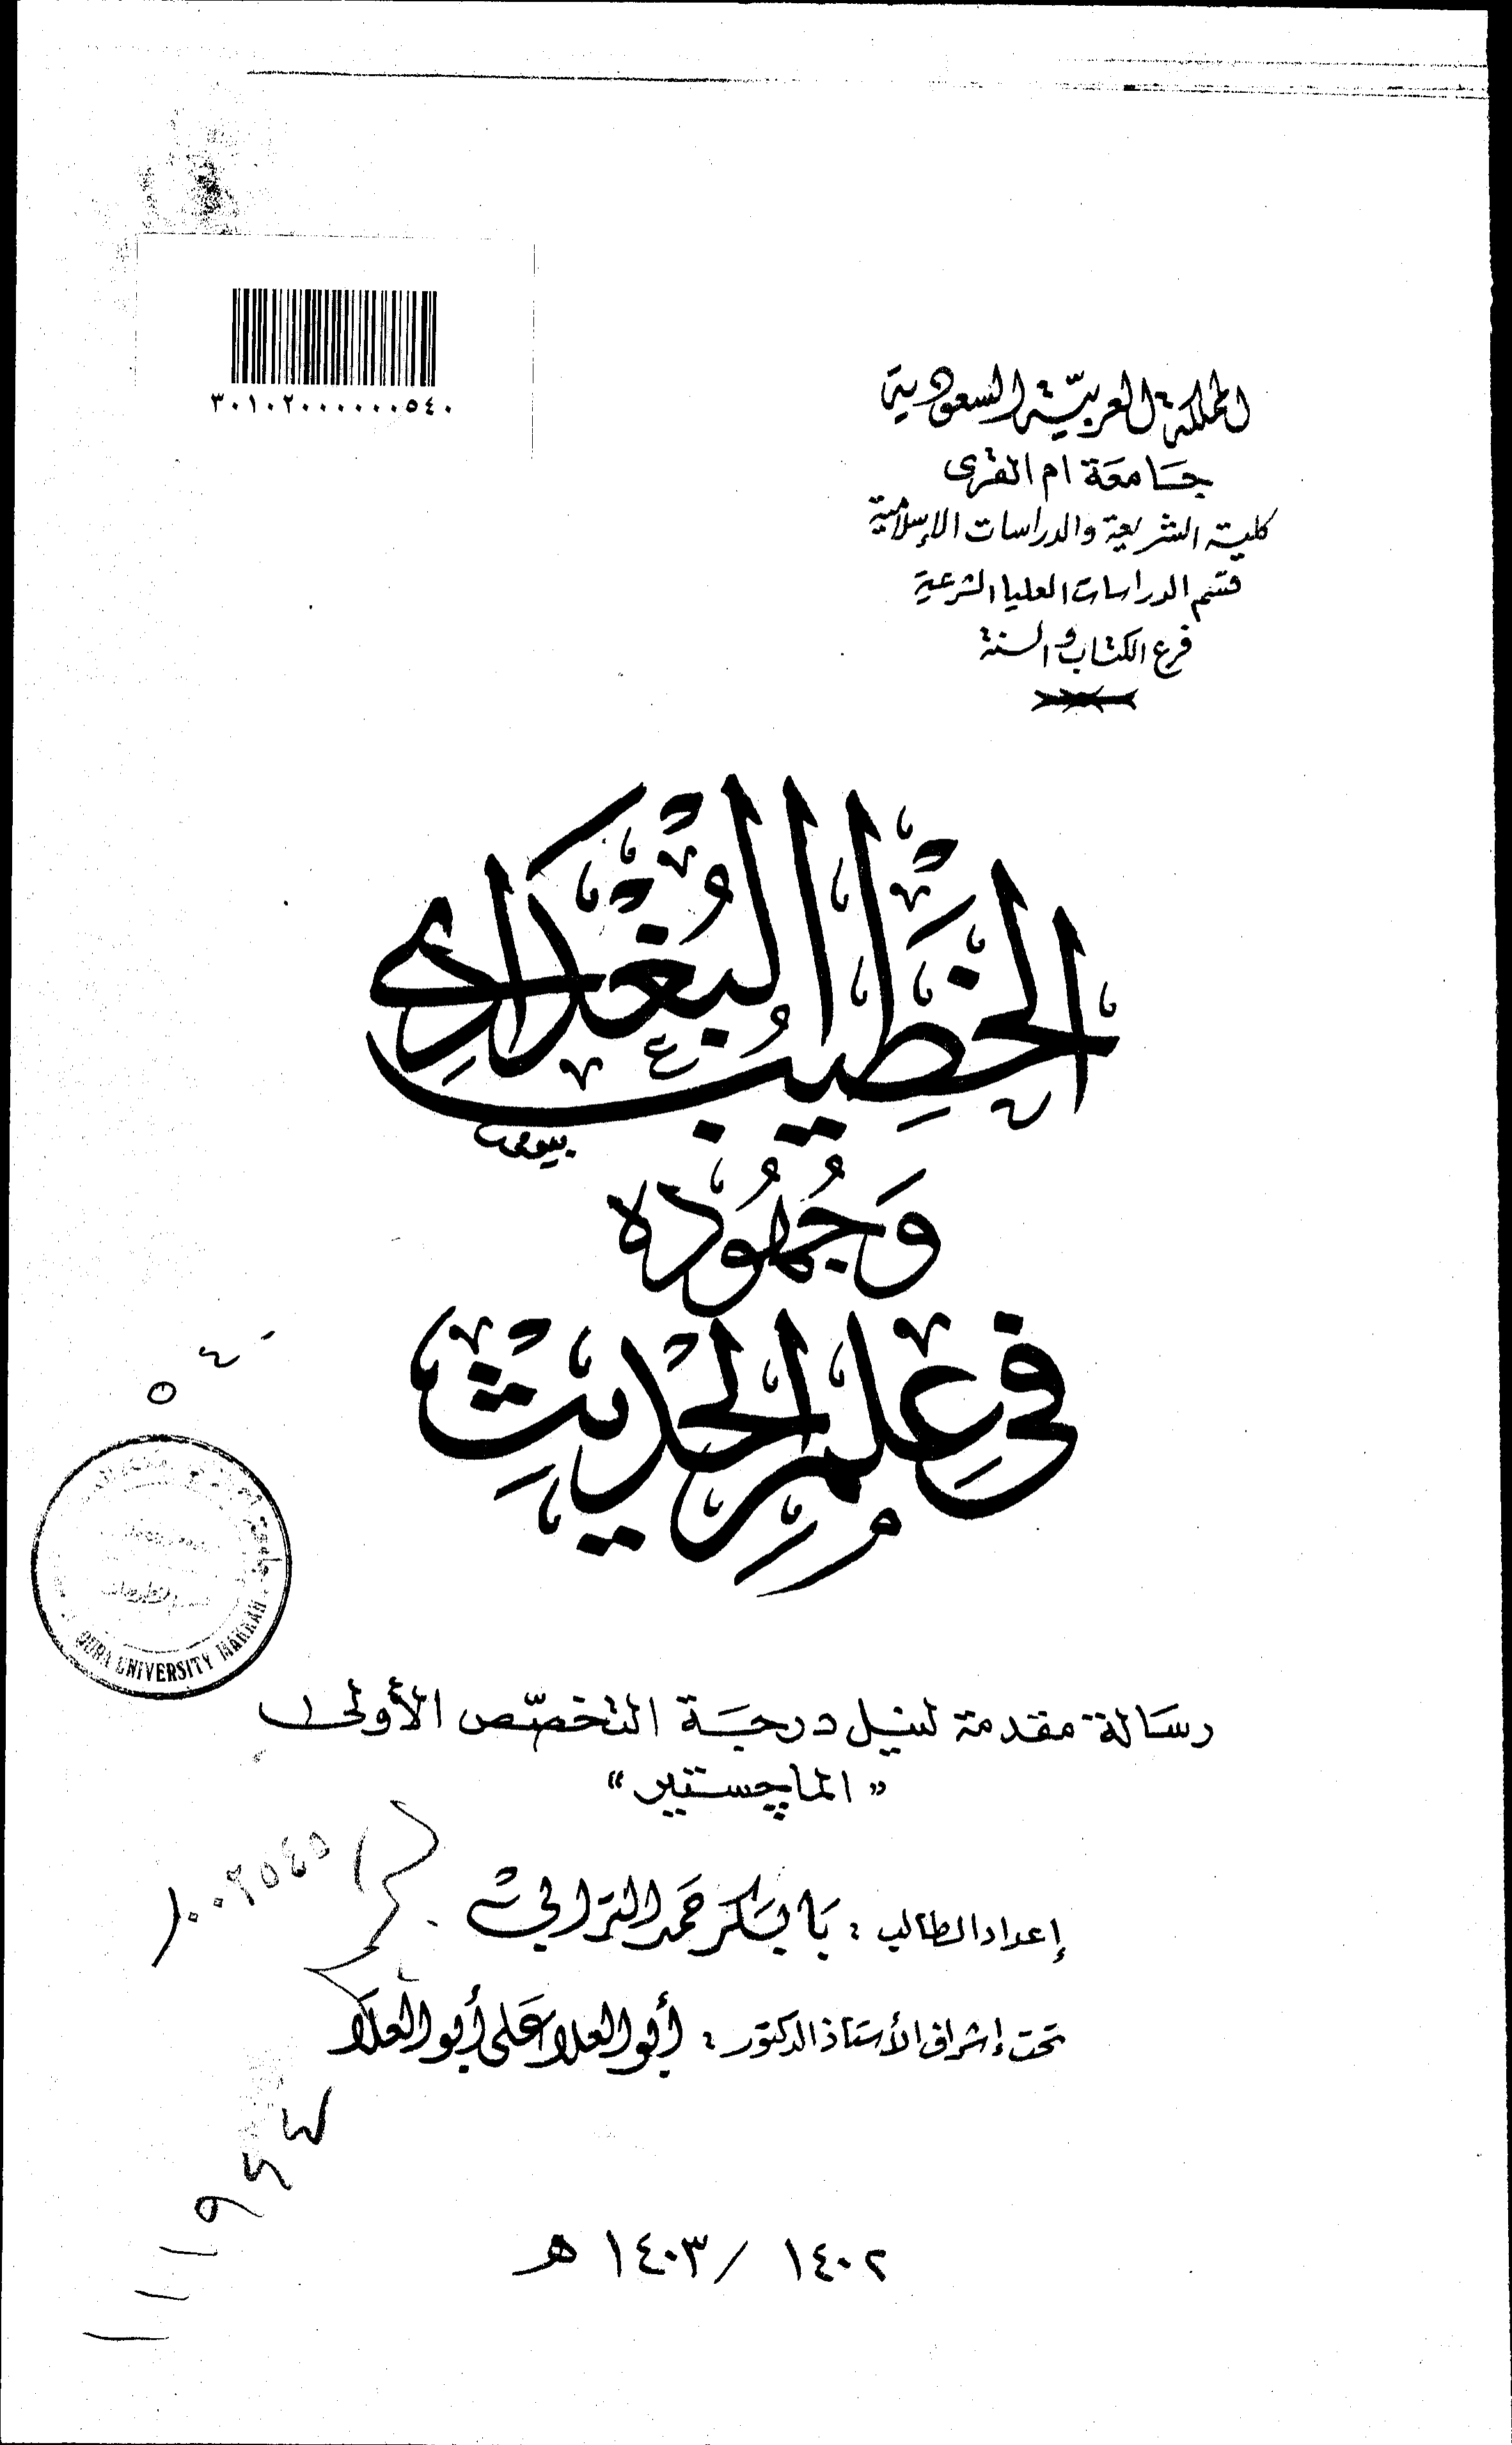 ٣٠١٠٢٠٠٠٠٠٠٥٤٠
المملكة العربيّة السعودية
جَامعَة ام القرى
كلية الشريعة والدراسات الإسلامية
قسم الدراسات العليا الشرعية
فرع الكتاب والسنة
الخَطِيبُ البُغْدَادِي
بيومى
وَجُهُوده
في عِلمِ الحَديثِ
٥٤٠
UNIVERSITY MAKKAH
رسَالة مقدمة لنيل درجَة التخصّص الأولى
"الماچستير"
إعداد الطالب : بَابكر حَمد الترابي
تحت إشراف الأستاذ الدكتور : أبو العلا عَلى أبو العَلا
١٤٠٢ / ١٤٠٣ هـ